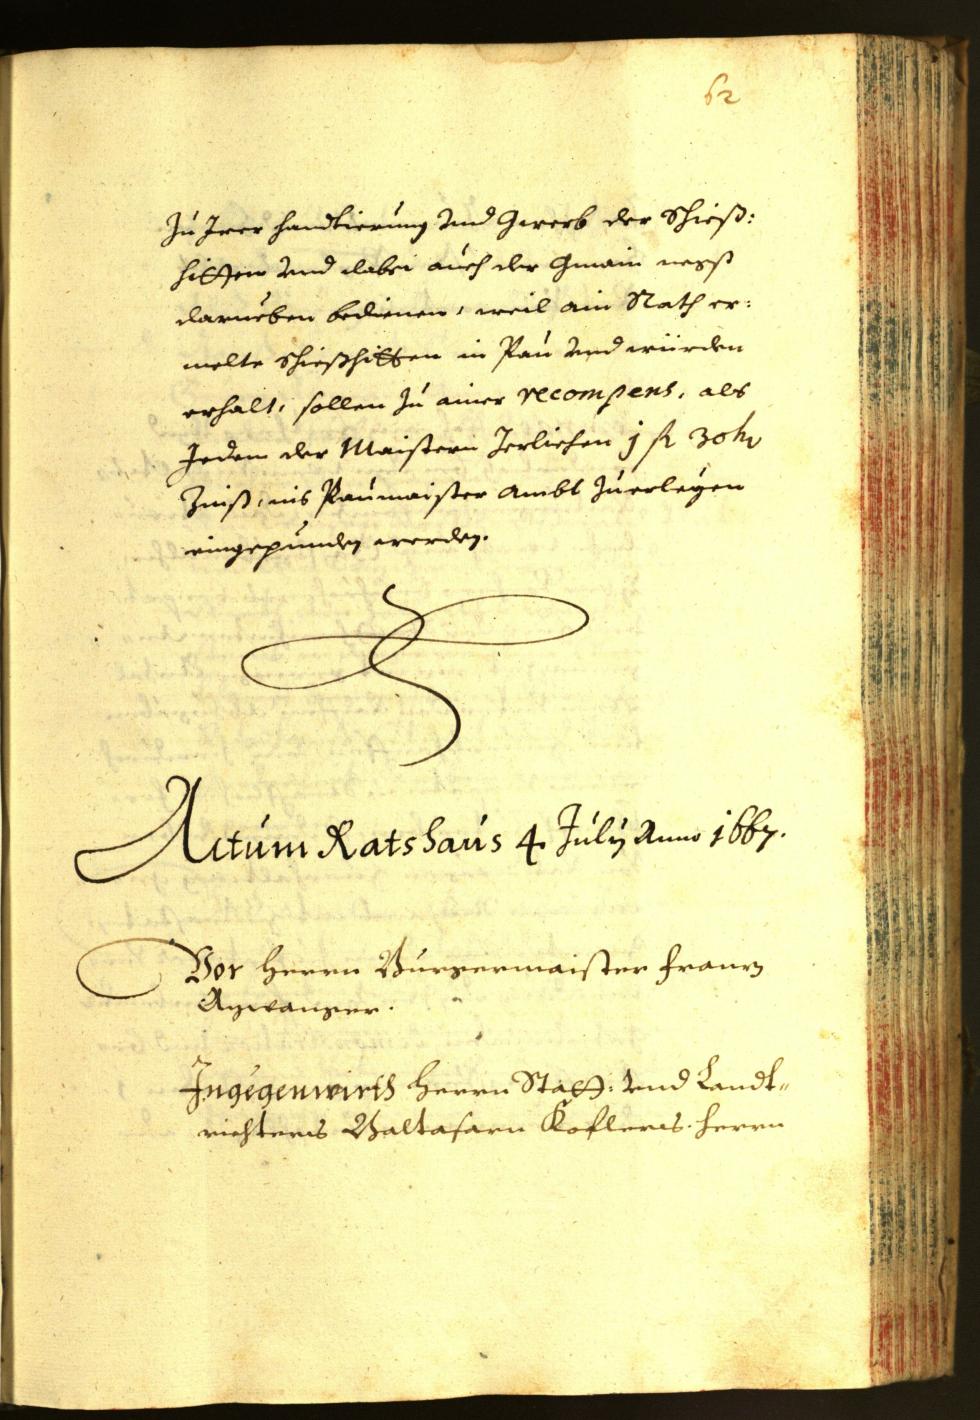 62
Zu Irer handtierung vnd Gewerb der Schieß:
hitten vnd dabei auch der Gmain nechst
darneben bedienen, weil ain Rath er:
melte Schießhitten in Pau vnd würden
erhalt, sollen zu ainer recompens, als
Jeden der Maistern Jerlichen j fl 30 kr
Zinß, ins Paumaister Ambt zuerlegen
eingepunden werden.
Actum Ratshaus 4. July Anno 1667.
Vor Herrn Burgermaister Franz
Agwanger.
Ingegenwirth Herrn Statt: vnd Landt-
richters Baltasarn Koflers. Herrn